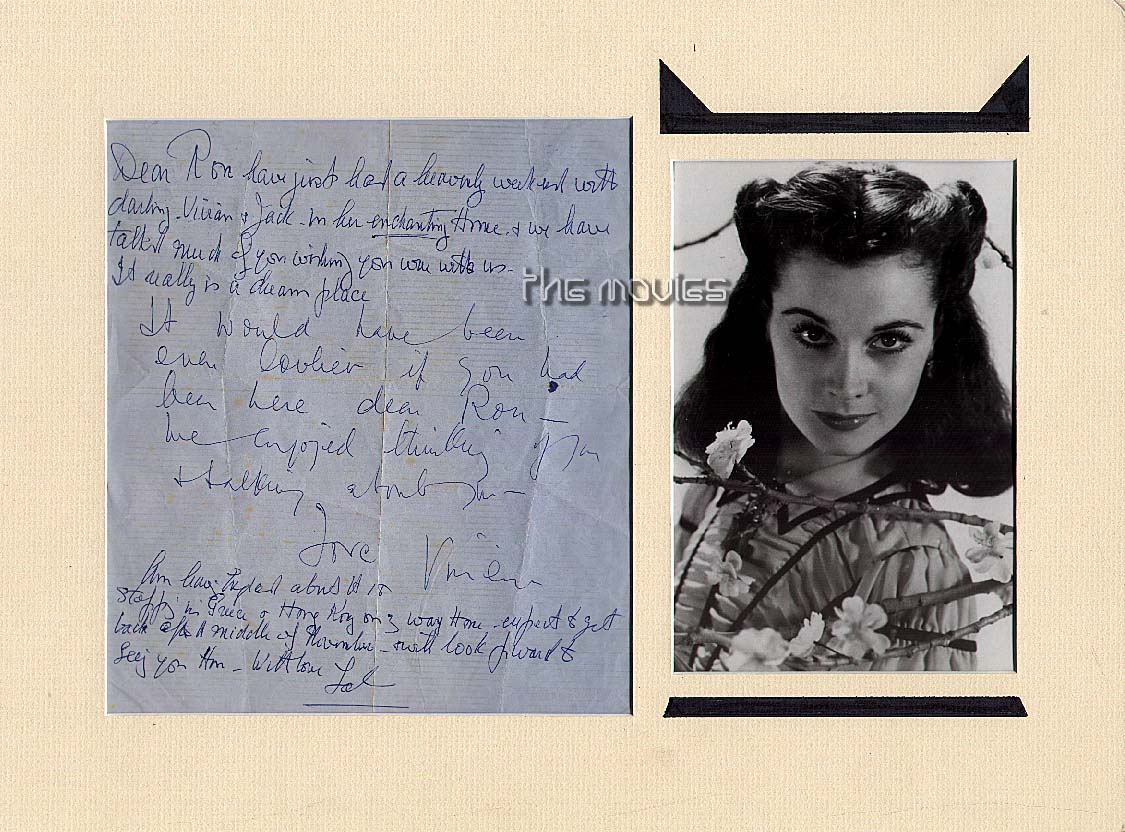 Dear Ron have just had a heavenly weekend with
darling Vivien & Jack in her enchanting Home & we have
talked much of you wishing you were with us -
It really is a dream place
the movies
It would have been
even lovlier if you had
been here dear Ron -
We enjoyed thinking of you
& talking about you -
Love Vivien
Am leaving England about 10
stopping in Greece & Hong Kong on way Home - expect to get
back middle of November - will look forward to
seeing you then - With love